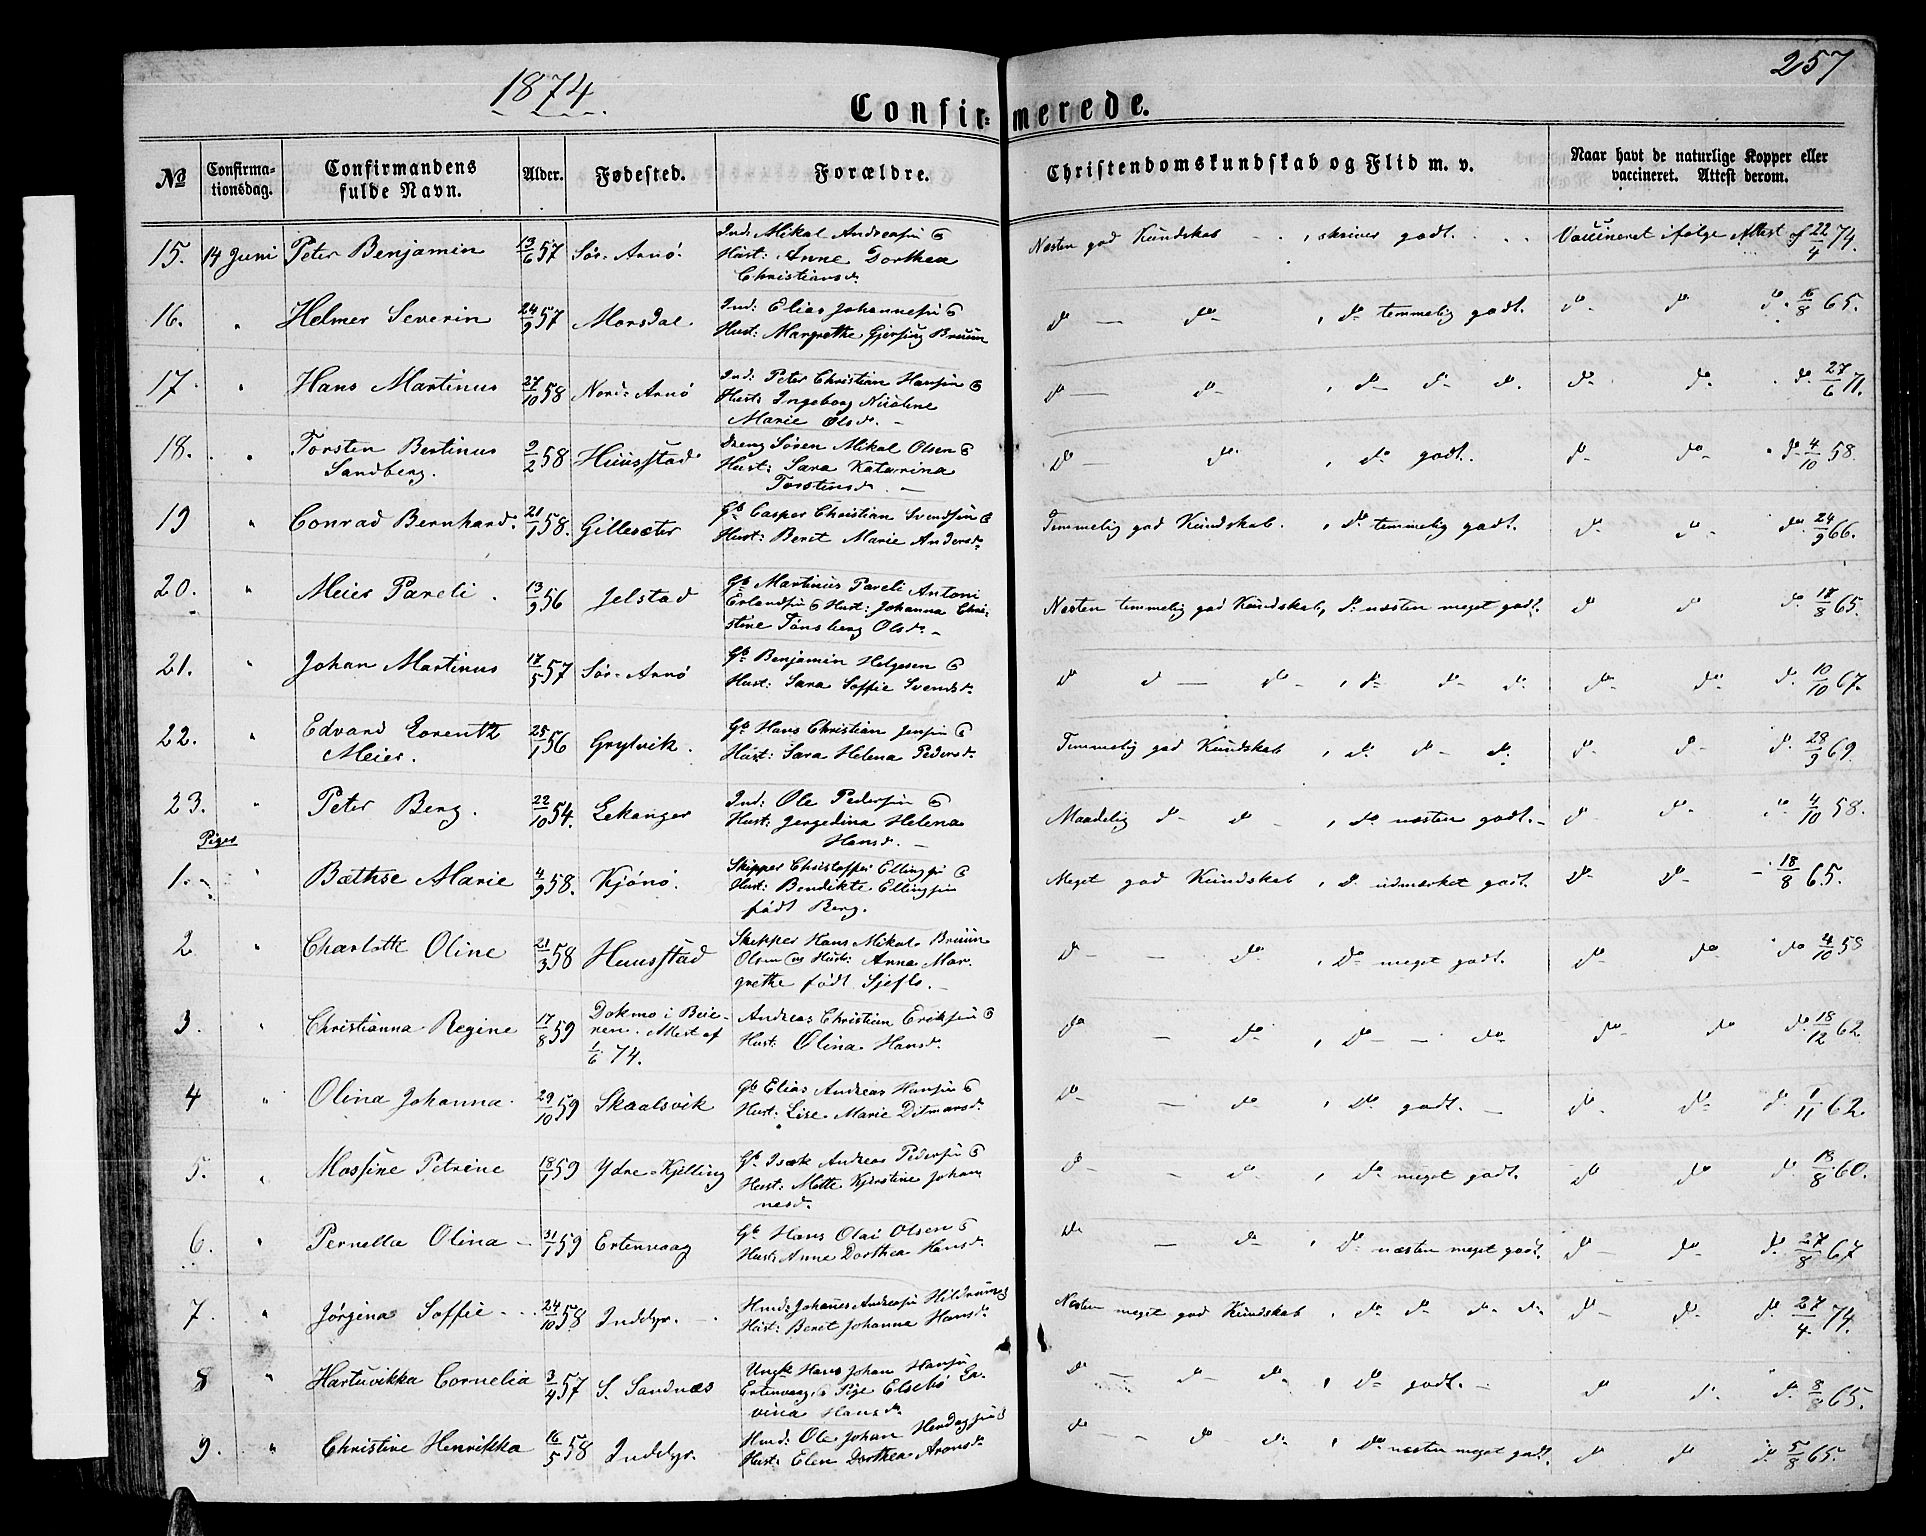 257
1874
Confirmerede.
No Confirmationsdag. Confirmandens fulde Navn. Alder. Fødested. Forældre. Christendomskundskab og Flid m. v. Naar havt de naturlige Kopper eller vaccineret. Attest derom.
15. 14 Juni Peter Benjamin 13/6 57 Sør-Arnø Ind: Mikal Andreas͡sen & Hust: Anne Dorthea Christiansd. Næsten god Kundskab , skriver godt. Vaccineret ifølge Attest af 22/4 74.
16. " Helmer Severin 24/9 57 Morsdal. Ind: Elias Johannesen & Hust: Margrethe Gjersing Bruun do — do , do temmelig godt. do do do 16/8 65.
17 " Hans Martinus 27/10 58 Nord-Arnø Ind: Peter Christian Hansen & Hust: Ingeborg Nicoline Marie Olsd. do — do , do do do. do do do 27/6 71.
18. " Torsten Bertinus Sandberg. 2/2 58 Huusstad Dreng Søren Mikal Olsen & Hust: Sara Katarina Torstensd. do - do , do godt. do do do 4/10 58.
19 " Conrad Bernhard. 21/1 58. Gillesæter Gb Casper Christian Svendsen & Hust: Beret Marie Andersd. Temmelig god Kundskab. , do temmelig godt. do do do 24/9 66.
20. " Meier Pareli. 13/9 56 Jelstad Gb Martinus Pareli Antoni Erlandsen & Hust: Johanna Christine Tønsberg Olsd. Næsten temmelig god Kundskab, do næsten meget godt. do do do 18/8 65.
21. " Johan Martinus 17/5 57 Sør-Arnø Gb Benjamin Helgesen & Hust: Sara Soffie Svendsd. do do — do , do do do do do do 10/10 67.
22. " Edvard Lorentz Meier. 25/1 56 Grytvik. Gb Hans Christian Jensen & Hust: Sara Helena Pedersd. Temmelig god Kundskab , do do do. do do do 28/9 69.
23. " Peter Berg. 22/10 54. Lekanger Ind: Ole Pedersen & Hust: Jergedina Helena Hansd. Maadelig do do , do næsten godt. do do do 4/10 58.
Piger
1. " Bæthse Marie 4/9 58. Kjønø. Skipper Christoffer Ellingsen & Hust: Bendikte Ellingsen født Berg. Meget god Kundskab , do udmærket godt. do do 18/8 65.
2 " Charlotte Oline 21/3 58 Huusstad Skipper Hans Mikal Bruun Olsen og Hust: Anna Margrethe født Sjefle. do - do , do meget godt. do do do 4/10 58
3. " Christianna Regine 17/8 59 Dokmo i Beieren. Attest af 1/6 74. Andreas Christian Eriksen & Hust: Olina Hansd. do - do , do - do do do do 18/12 62
4 " Olina Johanna. 29/10 59 Skaalsvik Gb Elias Andreas Hansen & Hust: Lise Marie Ditmarsd. do — do , do godt. do do do 1/11 62
5. " Massine Petrine 18/1 59 Ydre-Kjelling Gb Isak Andreas Pedersen & Hust: Mette Kjerstine Johannesd. do - do , do meget godt. do do do 18/8 60.
6. " Pernella Olina 31/1 59 Ertenvaag Gb Hans Olai Olsen & Hust: Anne Dorthea Hansd. do — do , do næsten meget godt. do do do 27/8 67
7. " Jørgina Soffie 24/10 58 Inddyr. Hmd: Johanes Andreasen Hildrum & Hust: Beret Johanna Hansd. Næsten meget god Kundskab , do do do do do do do 27/4 74.
8 " Hartuvikka Cornelia 3/4 57 S. Sandnæs Ungk Hans Johan Hansen Ertenvaag & Pige Elsebø Lavina Hansd. do — do do , do godt. do do do 8/8 65.
9. " Christine Henrikka 16/5 58 Inddyr. Hmd: Ole Johan Herdagsen & Hust: Elen Dorthea Aronsd. do - do do , do næsten meget godt. do do do 5/8 65.